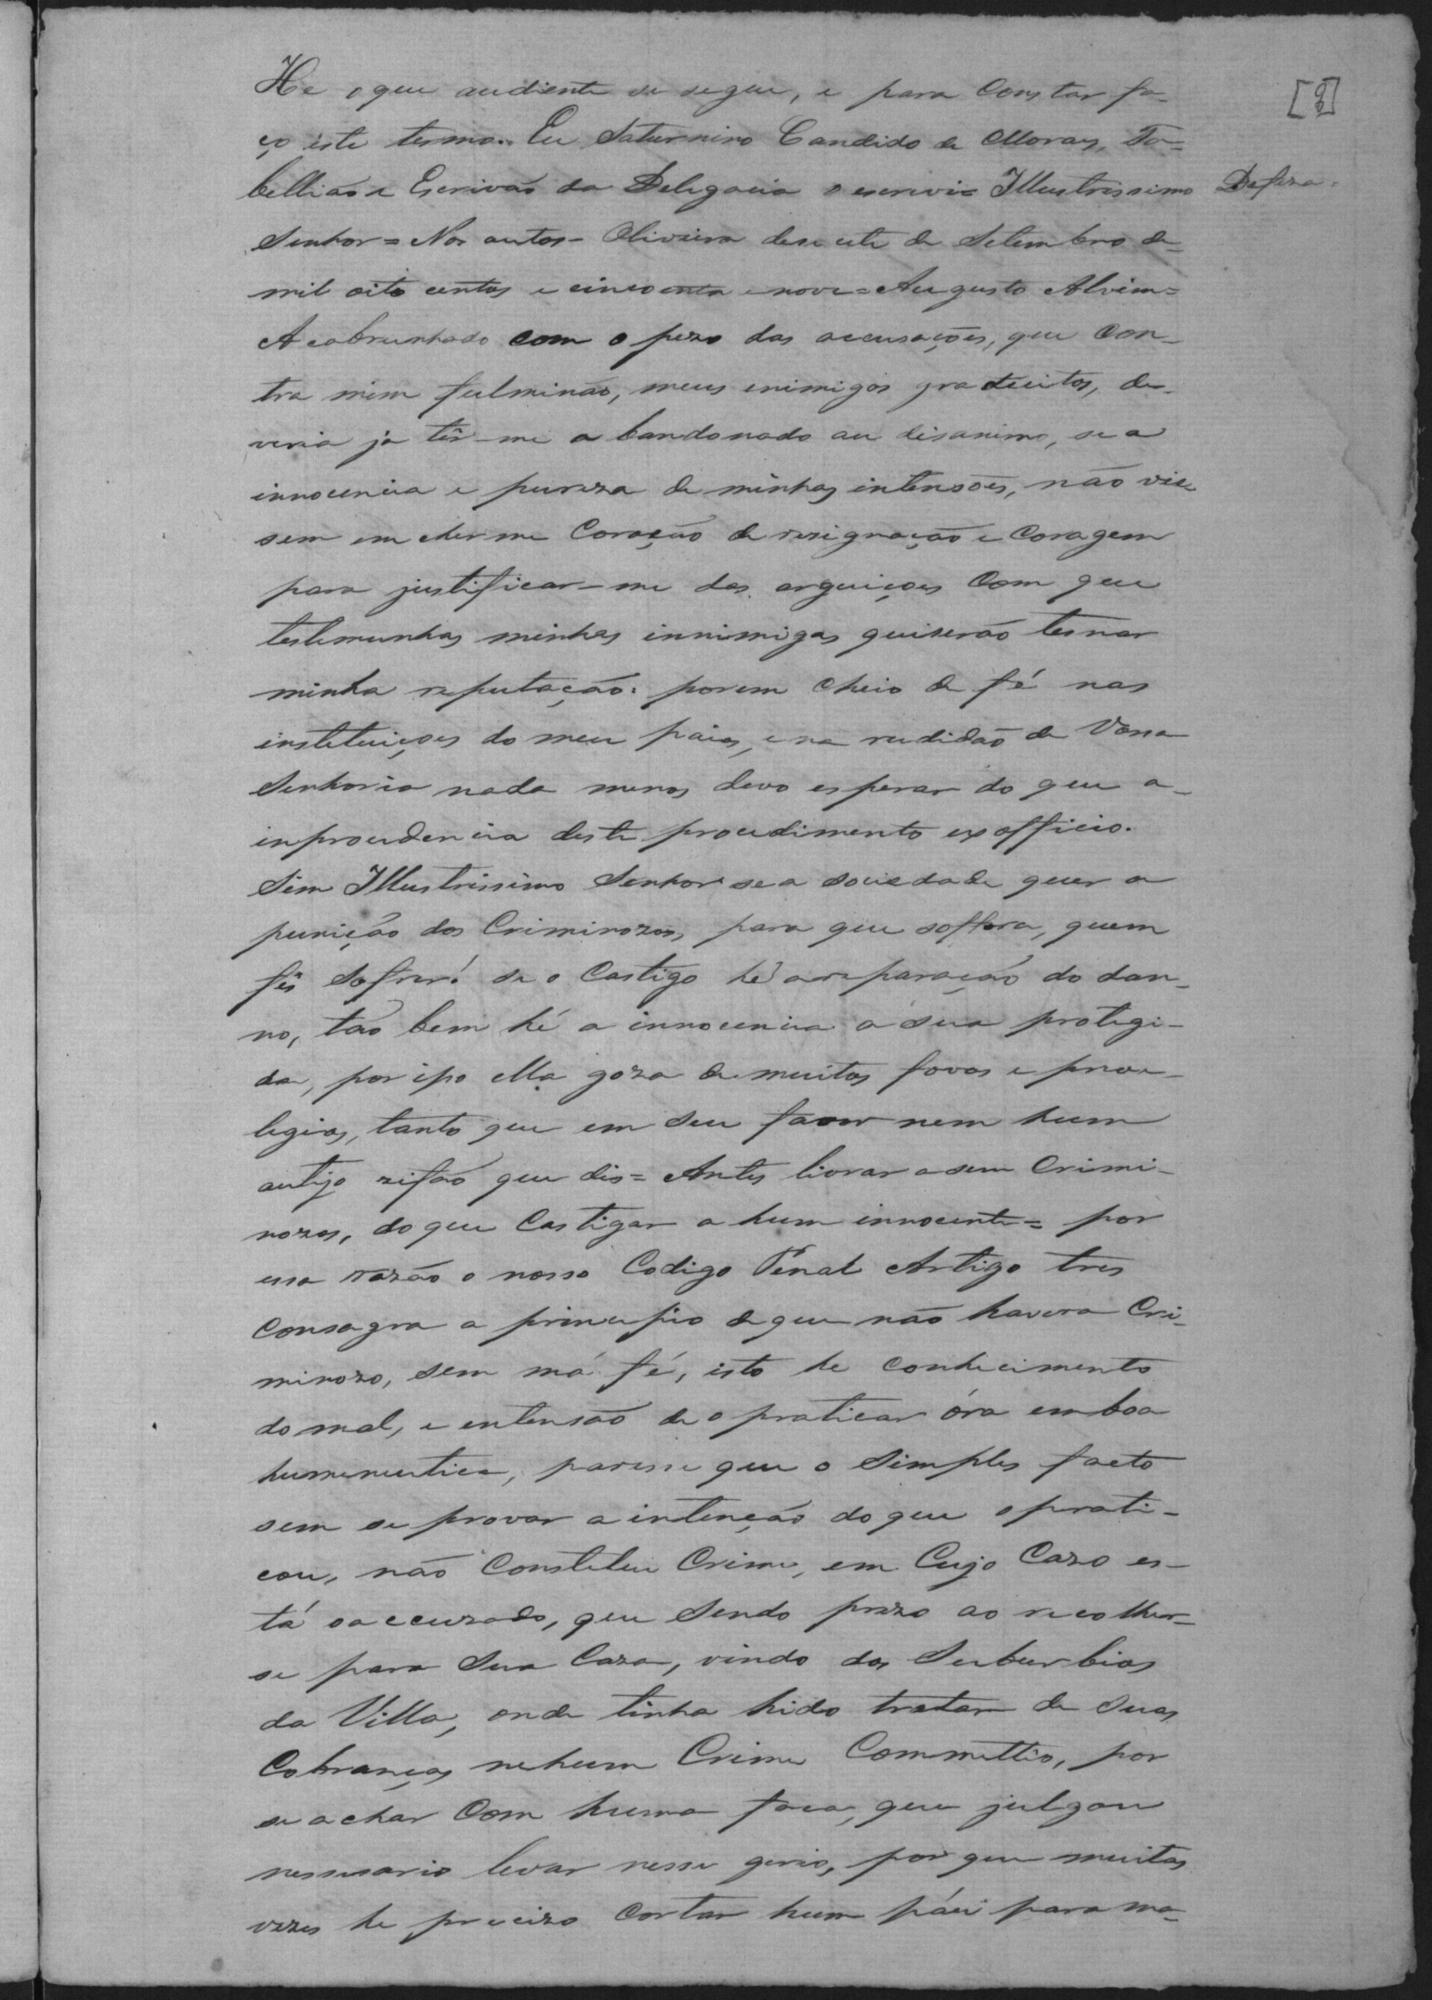 [8]
He o que audiente se segue, e para Constar fa-
ço este termo. Eu Saturnino Candido de Moraes, Ta=
bellião e Escrivão da Delegacia o escrevi= Illustrissimo
Defeza.
Senhor= Nos autos- Oliveira desecete de Setembro de
mil oito centos e cincoenta e nove= Augusto Alvim=
Acabrunhado com o pezo das accusações, que Con-
tra mim fulminão, meus enimigos gratuitos, de-
veria ja têr-me abandonado au disanimo, se a
innocencia e pureza de minhas intensões, não vies
sem encher me Coração de resignação e Coragem
para justificar-me das arguiçoes Com que
testemunhas minhas innimigas quiserão tisnar
minha reputação: porem Cheio de fé nas
instituiçoes do meu paiz, e na rectidão de Vossa
Senhoria nada menos devo esperar do que a-
inprocedencia deste procedimento exofficio.
Sim Illustrissimo Senhor se a sociedade quer a
punição dos Criminozos, para que soffra, quem
fês sofrer! se o Castigo hé a reparação do dan-
no, tão bem hé a innocencia a sua protegi-
da, por ipso ella goza de muitos foros e prove-
legios, tanto que em seu favor vem hum
antigo rifão que dis= Antes livrar a sem Crimi-
nozos, do que Castigar a hum innocente= por
essa razão o nosso Codigo Penal Artigo tres
Consagra a principio de que não havera Cri-
minozo, sem má fé, isto he conhecimento
do mal, e entensão de o praticar óra em boa
humeneutica, paresse que o Simples facto
sem se provar a intenção do que o prati-
cou, não Constitue Crime, em Cujo Cazo es-
tá o accuzado, que Sendo prezo ao recolher-
se para Sua Caza, vindo dos Suburbios
da Villa, onde tinha hido tratar de Suas
Cobranças nehum Crime Commettio, por
se achar Com huma faca, que julgou
nessesario levar nesse giro, por que muitas
vezes he precizo Cortar hum páu para ma-